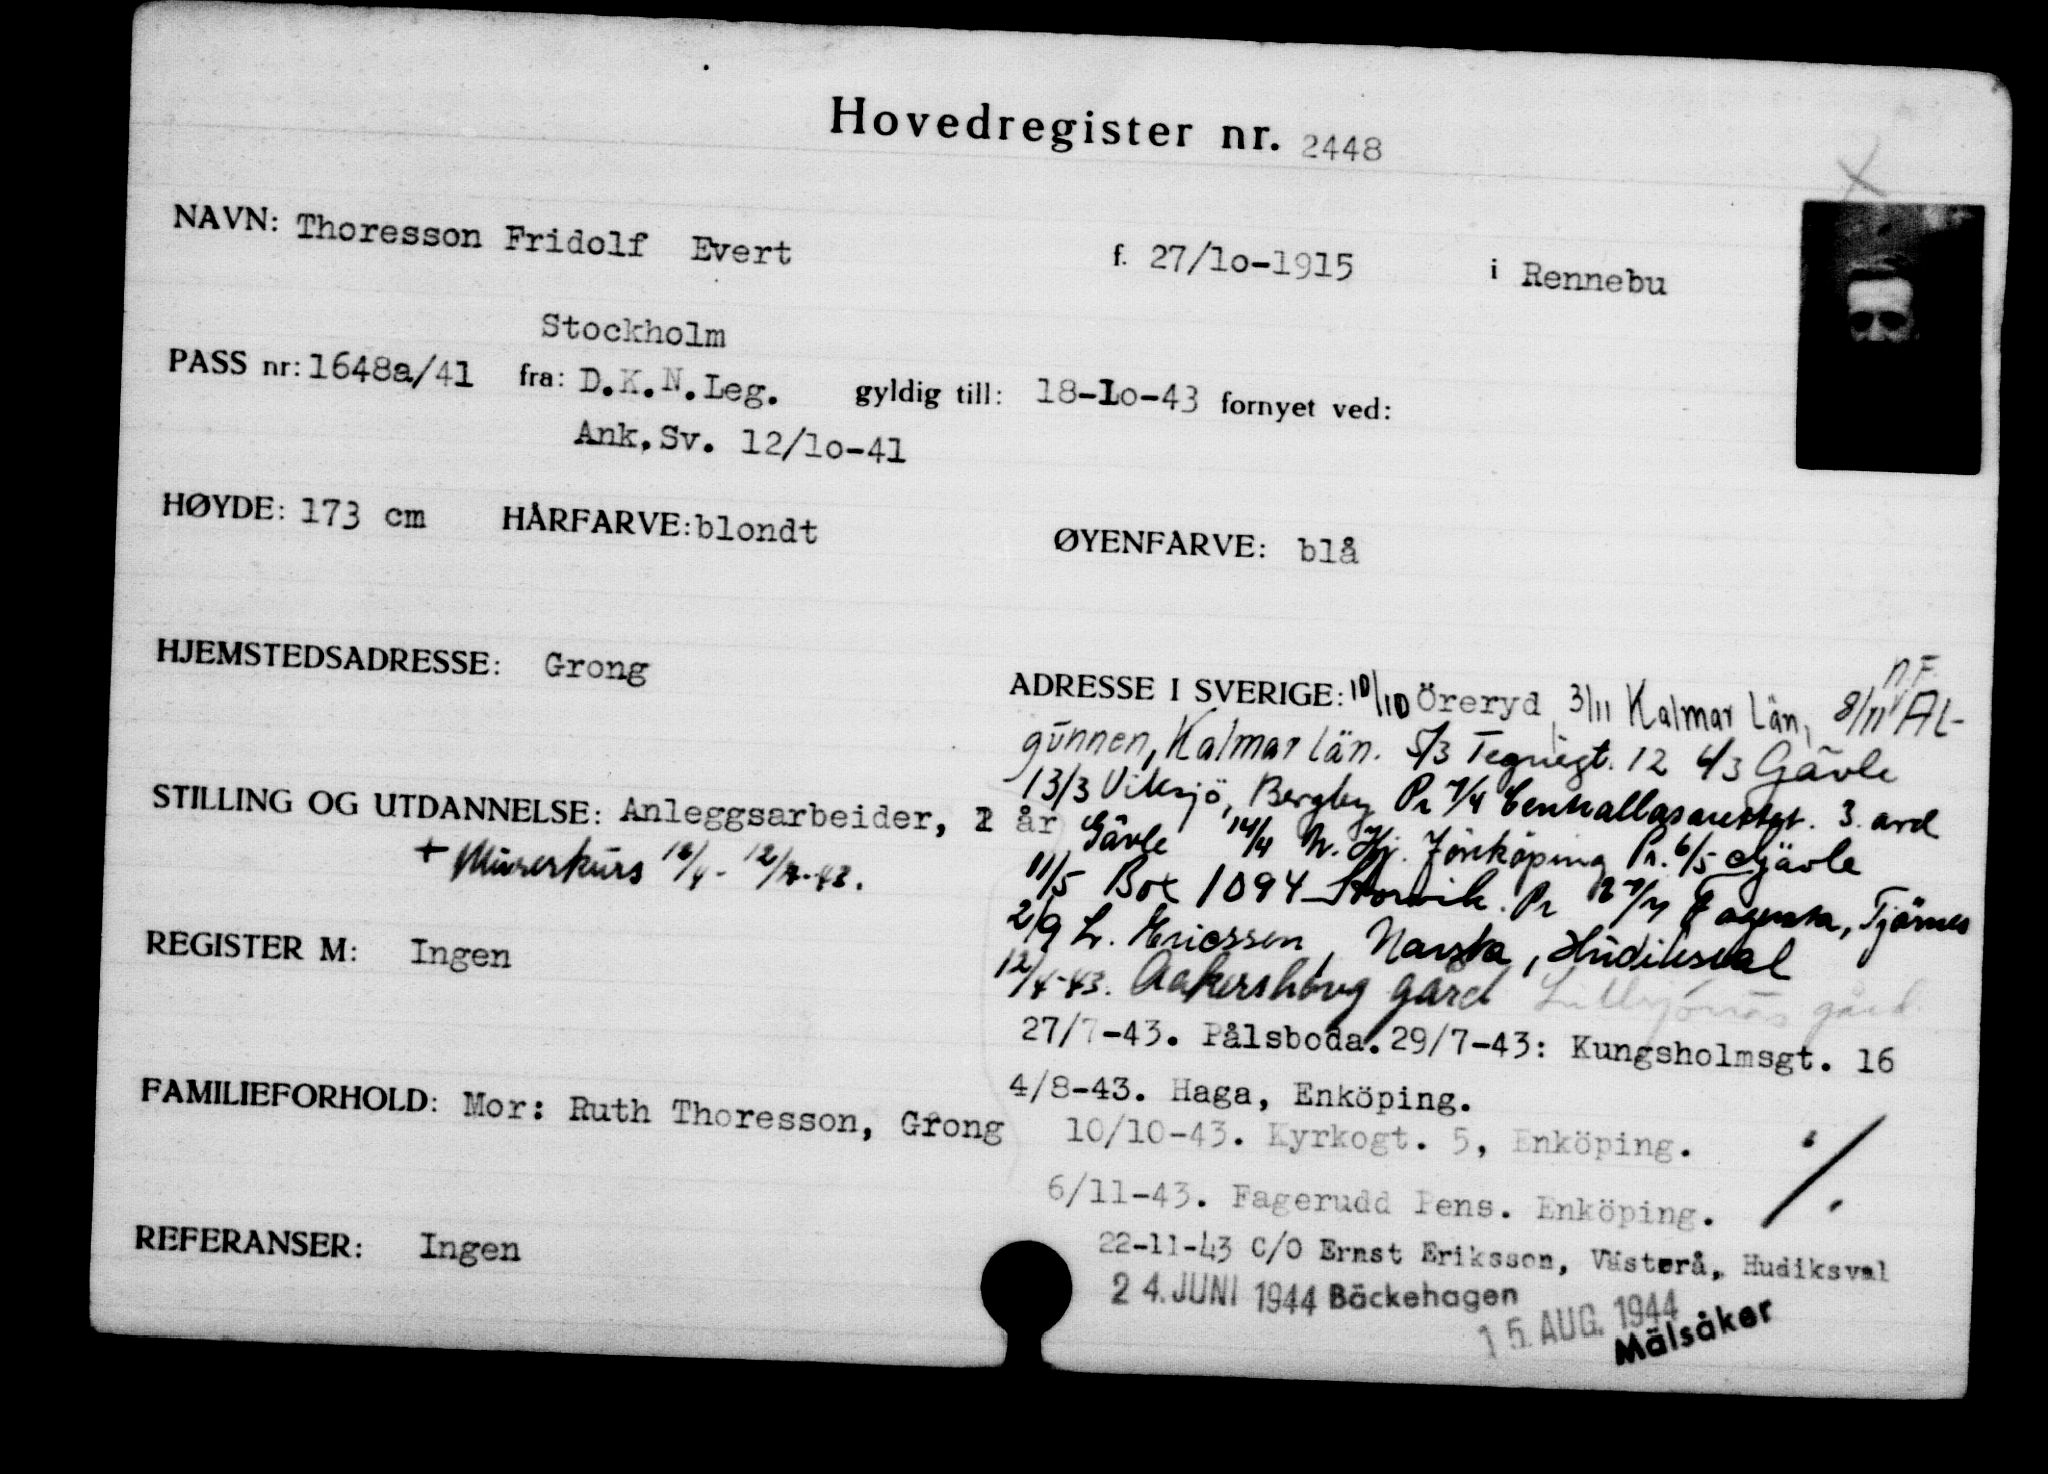 Hovedregister nr. 2448
NAVN: Thoresson Fridolf Evert f. 27/10-1915 i Rennebu
Stockholm
PASS nr: 1648a/41 fra: D.K.N.Leg. gyldig till: 18-10-43 fornyet ved:
Ank.Sv. 12/10-41
HØYDE: 173 cm HÅRFARVE: blondt ØYENFARVE: blå
HJEMSTEDSADRESSE: Grong
n.F.
ADRESSE I SVERIGE: 10/10 Öreryd, 3/11 Kalmar län, 8/11 Al-
gunnen, Kalmar län. 5/3 Tegnégt. 12 6/3 Gävle
13/3 Viksjö, Bergby Pr 7/4 3. avd
STILLING OG UTDANNELSE: Anleggsarbeider, år
Gävle 14/4 Jönköping Pr. 6/5 Gävle
+ Murerkurs
11/5 Box 1094 Storvik. Pr Fagersta, Tjärnes
2/9 L. Ericsson, Hudiksval
REGISTER M: Ingen
12/4-43. Aakershovg gård Lillsjönäs gård
27/7-43. Pålsboda. 29/7-43: Kungsholmsgt. 16
4/8-43. Haga, Enköping.
FAMILIEFORHOLD: Mor: Ruth Thoresson, Grong
10/10-43. Kyrkogt. 5, Enköping.
6/11-43. Fagerudd Pens. Enköping.
REFERANSER: Ingen
22-11-43 C/O Ernst Eriksson, Västerå, Hudiksval
24. JUNI 1944 Bäckehagen
15. AUG. 1944
Mälsåker